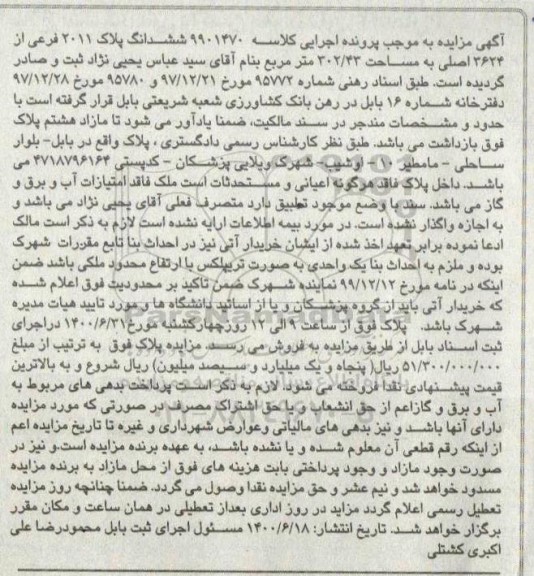 آگهی مزایده به موجب پرونده اجرایی کلاسه ۹۹۰۱۴۷۰ ششدانگ پلاک ۲۰۱۱ فرعی از
۳۶۲۴ اصلی به مساحت ۳۰۲/۴۳ متر مربع بنام آقای سید عباس یحیی نژاد ثبت و صادر
گردیده است. طبق اسناد رهنی شماره ۹۵۷۷۲ مورخ ۹۷/۱۲/۲۱ و ۹۵۷۸۰ مورخ ۹۷/۱۲/۲۸
دفترخانه شماره ۱۶ بابل در رهن بانک کشاورزی شعبه شریعتی بابل قرار گرفته است با
حدود و مشخصات مندجر در سند مالکیت، ضمنا یادآور می شود تا مازاد هشتم پلاک
فوق بازداشت می باشد. طبق نظر کارشناس رسمی دادگستری ، پلاک واقع در بابل- بلوار
ساحلی - مامطیر ۱۰ - اوشیب - شهرک ویلایی پزشکان - کدپستی ۴۷۱۸۷۹۶۱۶۴ می
باشد. داخل پلاک فاقد هرگونه اعیانی و مستحدثات است ملک فاقد امتیازات آب و برق و
گاز می باشد. سند با وضع موجود تطبیق دارد متصرف فعلی آقای یحیی نژاد می باشد و
به اجازه واگذار نشده است. در مورد بیمه اطلاعات ارایه نشده است لازم به ذکر است مالک
ادعا نموده برابر تعهد اخذ شده از ایشان خریدار آتی نیز در احداث بنا تابع مقررات شهرک
بوده و ملزم به احداث بنا یک واحدی به صورت تریپلکس با ارتفاع محدود ملکی باشد ضمن
اینکه در نامه مورخ ۹۹/۱۲/۱۲ نماینده شهرک ضمن تاکید بر محدودیت فوق اعلام شده
که خریدار آتی باید از گروه پزشکان و یا از اساتید دانشگاه ها و مورد تایید هیات مدیره
شهرک باشد. پلاک فوق از ساعت ۹ الی ۱۲ روزچهارکشنبه مورخ ۱۴۰۰/۶/۳۱ دراجرای
ثبت اسناد بابل از طریق مزایده به فروش می رسد. مزایده پلاک فوق به ترتیب از مبلغ
۵۱/۳۰۰/۰۰۰/۰۰۰ ریال( پنجاه و یک میلیارد و سیصد میلیون) ریال شروع و به بالاترین
قیمت پیشنهادی نقدا فروخته می شود. لازم به ذکر است پرداخت بدهی های مربوط به
آب و برق و گازاعم از حق انشعاب و یا حق اشتراک مصرف در صورتی که مورد مزایده
دارای آنها باشد و نیز بدهی های مالیاتی وعوارض شهرداری و غیره تا تاریخ مزایده اعم
از اینکه رقم قطعی آن معلوم شده و یا نشده باشد، به عهده برنده مزایده است.و نیز در
صورت وجود مازاد و وجود پرداختی بابت هزینه های فوق از محل مازاد به برنده مزایده
مسدود خواهد شد و نیم عشر و حق مزایده نقدا وصول می گردد. ضمنا چنانچه روز مزایده
تعطیل رسمی اعلام گردد مزاید در روز اداری بعداز تعطیلی در همان ساعت و مکان مقرر
برگزار خواهد شد. تاریخ انتشار: ۱۴۰۰/۶/۱۸ مسئول اجرای ثبت بابل محمودرضا علی
اکبری کشتلی